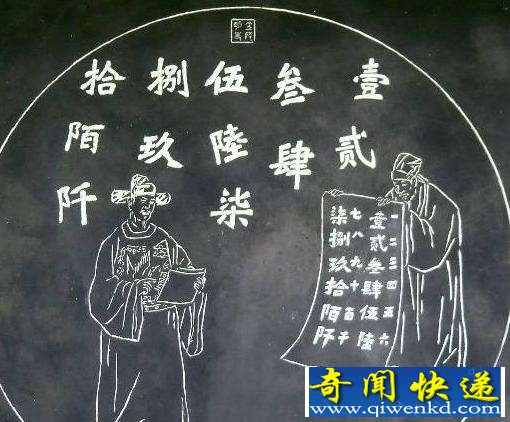 壹貳
叁肆
伍陸柒
捌玖
拾陌阡
一二三四五六
壹貳叁肆伍陸
七八九十百千
柒捌玖拾陌阡
奇闻快递
www.qiwenkd.com